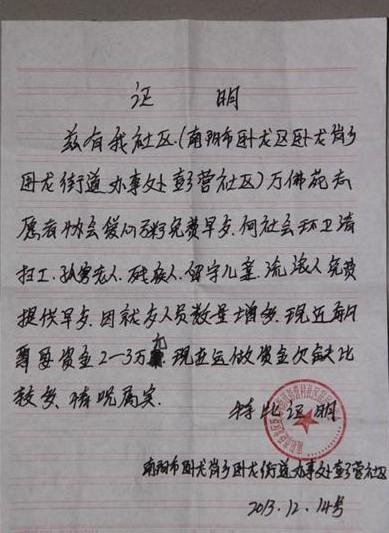 证 明
兹有我社区（南阳市卧龙区卧龙岗乡
卧龙街道办事处彭营社区）万佛苑志
愿者协会爱心粥免费早点.向社会环卫清
扫工.孤寡老人.残疾人.留守儿童.流浪人免费
提供早点.因就歺人员数量增多.现近每月
需要资金2-3万元 现在运做资金欠缺比
较多.情况属实.
特此证明
南阳市卧龙岗乡卧龙街道办事处彭营社区
2013.12.14号